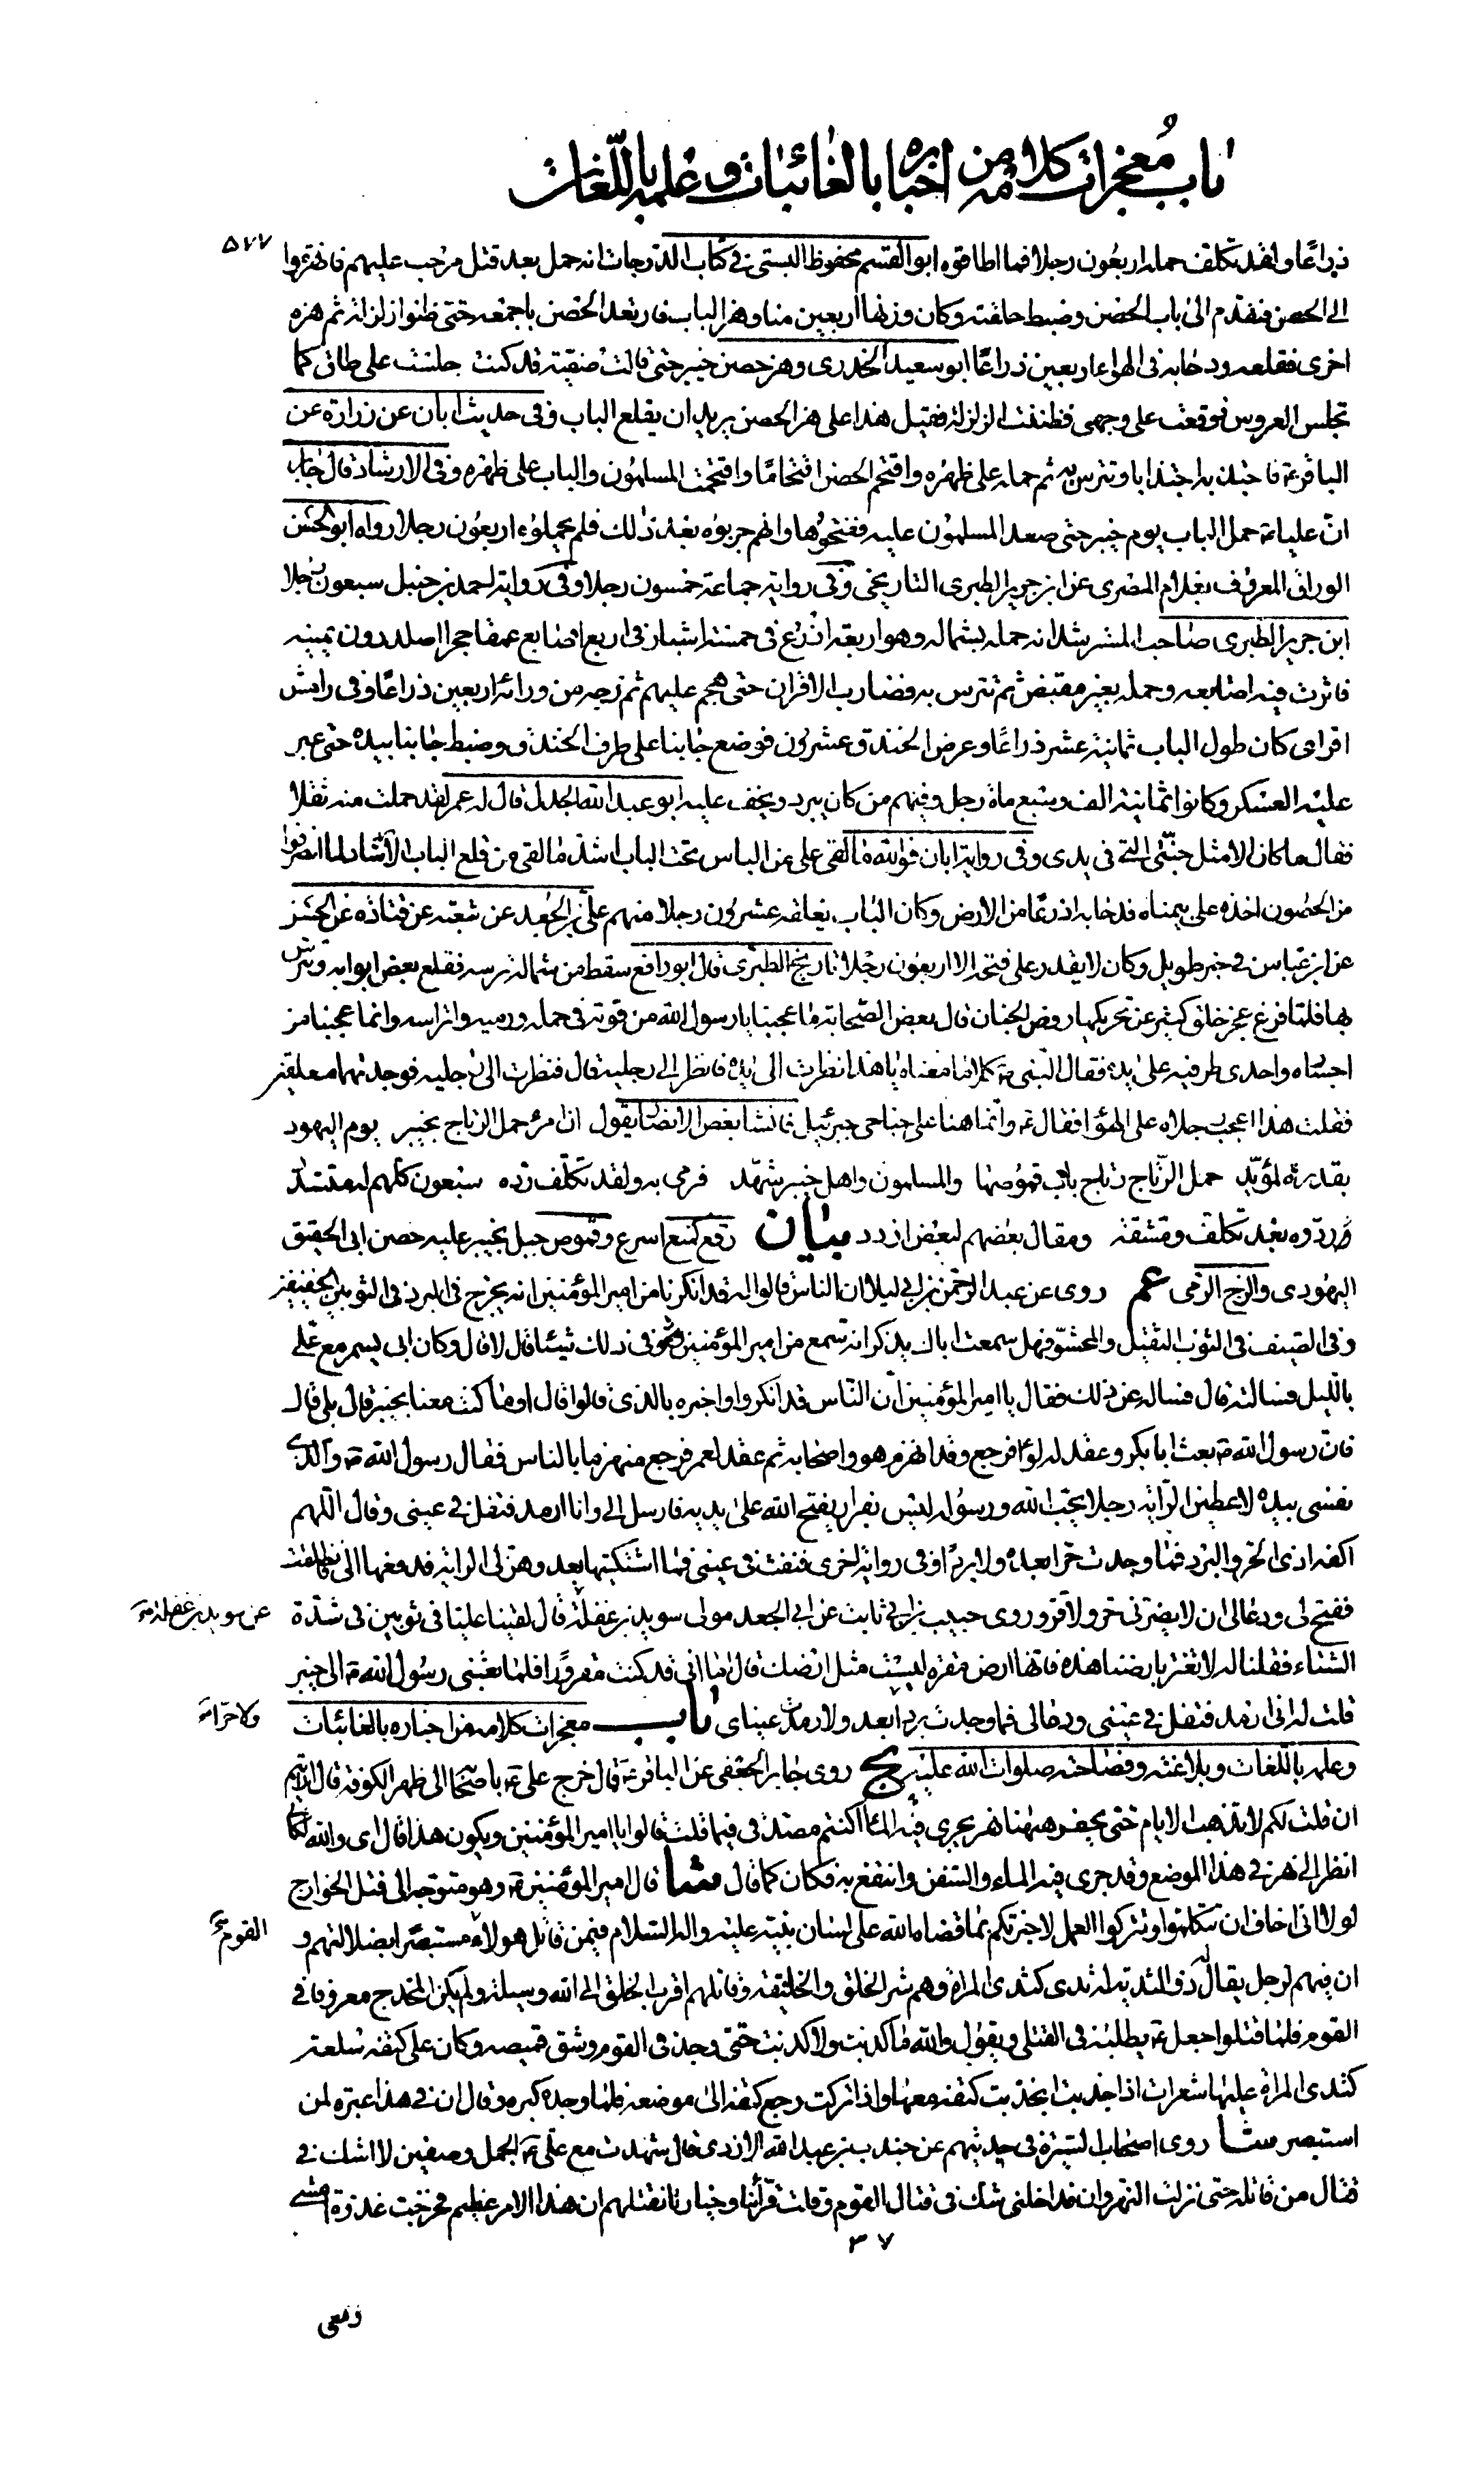 باب معجزات كلامه من اخباره بالغائبات و علمه باللّغات
۵۷۷
ذراعًا ولقد تكلّف حمله اربعون رجلا فما اطاقوه ابو القسم محفوظ البستى فى كتاب الدرجات انه حمل بعد قتل مرحب عليهم فانهزموا
الى الحصن فتقدم الى باب الحصن وضبط حلقته وكان وزنها اربعين منا وهز الباب فارتعد الحصن باجمعه حتى ظنوا زلزلة ثم هزه
اخرى فقلعه ودحا به فى الهواء اربعين ذراعًا ابو سعيد الخدرى وهز حصن خيبر حتى قالت صفيّة قد كنت جلست على طاق كما
تجلس العروس فوقعت على وجهى فظننت الزلزلة فقيل هذا على هز الحصن يريد ان يقلع الباب وفى حديث ابان عن زرارة عن
الباقر ع فاجتذبه اجتذابا وتترس به ثم حمله على ظهره واقتحم الحصن اقتحامًا واقتحمت المسلمون والباب على ظهره وفى الارشاد قال جابر
انّ عليا ع حمل الباب يوم خيبر حتى صعد المسلمون عليه ففتحوها وانهم جربوه بعد ذلك فلم يحملوه اربعون رجلا رواه ابو الحسن
الوراق المعروف بغلام المصرى عن ابن جرير الطبرى التاريخى وفى رواية جماعة خمسون رجلا وفى رواية احمد بن حنبل سبعون رجلا
ابن جرير الطبرى صاحب المسترشد انه حمله بشماله وهو اربعة اذرع فى خمسة اشبار فى اربع اصابع عمقا حجرا اصلد دون يمينه
فاثرت فيه اصابعه وحمله بغير مقبض ثم تترس به فضارب الاقران حتى هجم عليهم ثم زجه من ورائه اربعين ذراعًا وفى رامش
افزاى كان طول الباب ثمانية عشر ذراعًا وعرض الخندق عشرون فوضع جانبا على طرف الخندق وضبط جانبا بيده حتى عبر
عليه العسكر وكانوا ثمانية الف وسبع مأة رجل وفيهم من كان يبرد ويخف عليه ابو عبد الله الجدلى قال له عمر لقد حملت منه ثقلا
فقال ما كان الا مثل جنّتى التى فى يدى وفى رواية ابان فوالله ما لقى على من الباس تحت الباب اشد ما لقى من قلع الباب الارشاد لما انصرفوا
من الحصون اخذه على بيمناه فدحا به اذرعًا من الارض وكان الباب يغلقه عشرون رجلا منهم على بن الجعد عن شعبة عن قتادة عن الحسن
عن ابن عباس فى خبر طويل وكان لا يقدر على فتحه الا اربعون رجلا تاريخ الطبرى قال ابو رافع سقط من شماله ترسه فقلع بعض ابوابه وتترس
بها فلما فرغ عجز خلق كثير عن تحريكها روض الجنان قال بعض الصحابة ما عجبنا يا رسول الله من قوته فى حمله ورميه واتراسه وانما عجبنا من
احساه واحدى طرفيه على يده فقال النبى ص كلاما معناه يا هذا نظرت الى يده فانظر الى رجليه قال فنظرت الى رجليه فوجدتهما معلقين
فقلت هذا اعجب رجلاه على الهواء فقال ص وانما هما على جناحى جبرئيل فانشأ بعض الانصار يقول ان امرء حمل الرتاج بخيبر يوم اليهود
بقدرة لمؤيّد حمل الرّتاج رتاج باب قموصها والمسلمون واهل خيبر شهّد فرمى به ولقد تكلّف رده سبعون كلهم له متشدّد
ردّوه بعد تكلف ومشقة ومقال بعضهم لبعض ازدد بيان رقع كمنع اسرع وقموص جبل بخيبر عليه حصن ابى الحقيق
اليهودى والزج الرمى عم روى عن عبد الرحمن بن ابى ليلى ان الناس قالوا له قد انكرنا من امير المؤمنين انه يخرج فى البرد فى الثوبين الخفيفين
وفى الصيف فى الثوب الثقيل والمحشوّ فهل سمعت اباك يذكر انه سمع من امير المؤمنين فى ذلك شيئا قال لا قال وكان ابى يسمر مع على
بالليل فسالته قال فساله عن ذلك فقال يا امير المؤمنين انّ النّاس قد انكروا واخبره بالذى قالوا قال اوما كنت معنا بخيبر قال بلى قال
فانّ رسول الله ص بعث ابا بكر وعقد له لواء فرجع وقد انهزم هو واصحابه ثم عقد لعمر فرجع منهزما بالناس فقال رسول الله ص والذى
نفسى بيده لاعطين الراية رجلا يحبّ الله ورسوله ليس بفرار يفتح الله على يديه فارسل الى وانا ارمد فتفل فى عينى وقال اللهم
اكفه اذى الحر والبرد فما وجدت حرا بعده ولا بردًا وفى رواية اخرى فنفث فى عينى فما اشتكيتها بعد وهز لى الراية فدفعها الى فانطلقت
ففتح لى ودعا لى ان لا يضرنى حر ولا قر وروى حبيب بن ابى ثابت عن ابى الجعد مولى سويد بن غفلة قال لقينا عليا فى ثوبين فى شدّة
عن سويد بن غفلة
الشتاء فقلنا له لا تغتر بارضنا هذه فانها ارض مقرة ليست مثل ارضك قال اما انى قد كنت مقرورًا فلما بعثنى رسول الله ص الى خيبر
قلت له انى ارمد فتفل فى عينى ودعا لى فما وجدت بردا بعد ولا رمدت عيناى باب معجزات كلامه من اخباره بالغائبات
ولا حرّا
وعلمه باللّغات وبلاغته وفصاحته صلوات الله عليه يج روى جابر الجعفى عن الباقر ع قال خرج على ع باصحابه الى ظهر الكوفة قال ارايتم
ان قلت لكم لا تذهب الايام حتى يحفر ههنا نهر يجرى فيه الماء اكنتم مصدقى فيما قلت قالوا يا امير المؤمنين ويكون هذا قال اى والله لكانى
انظر الى نهر فى هذا الموضع وقد جرى فيه الماء والسفن وانتفع به فكان كما قال شا قال امير المؤمنين ع وهو متوجه الى قتل الخوارج
لولا انى اخاف ان تتكلموا وتتركوا العمل لاخبرتكم بما قضاه الله على لسان نبيه عليه واله السلام فيمن قاتل هولاء مستبصرا بضلالتهم و
القوم
ان فيهم لرجل يقال له ذو الثدية له ثدى كثدى المراة وهم شر الخلق والخليقة وقاتلهم اقرب الخلق الى الله وسيلة ولم يكن المخدج معروفا فى
القوم فلما قتلوا جعل ع يطلبه فى القتلى ويقول والله ما كذبت ولا كذبت حتى وجد فى القوم وشق قميصه وكان على كتفه سلعة
كثدى المراة عليها شعرات اذا جذبت انجذبت كتفه معها واذا تركت رجع كتفه الى موضعه فلما وجده كبر وقال ان فى هذا عبرة لمن
استبصر شا روى اصحاب السيرة فى حديثهم عن جندب بن عبد الله الازدى قال شهدت مع على ع الجمل وصفين لا اشك فى
قتال من قاتله حتى نزلت النهروان فداخلنى شك فى قتال القوم وقلت قرّاؤنا وخيارنا نقتلهم ان هذا الامر عظيم فخرجت غدوة امشى
۳۷
ومعى